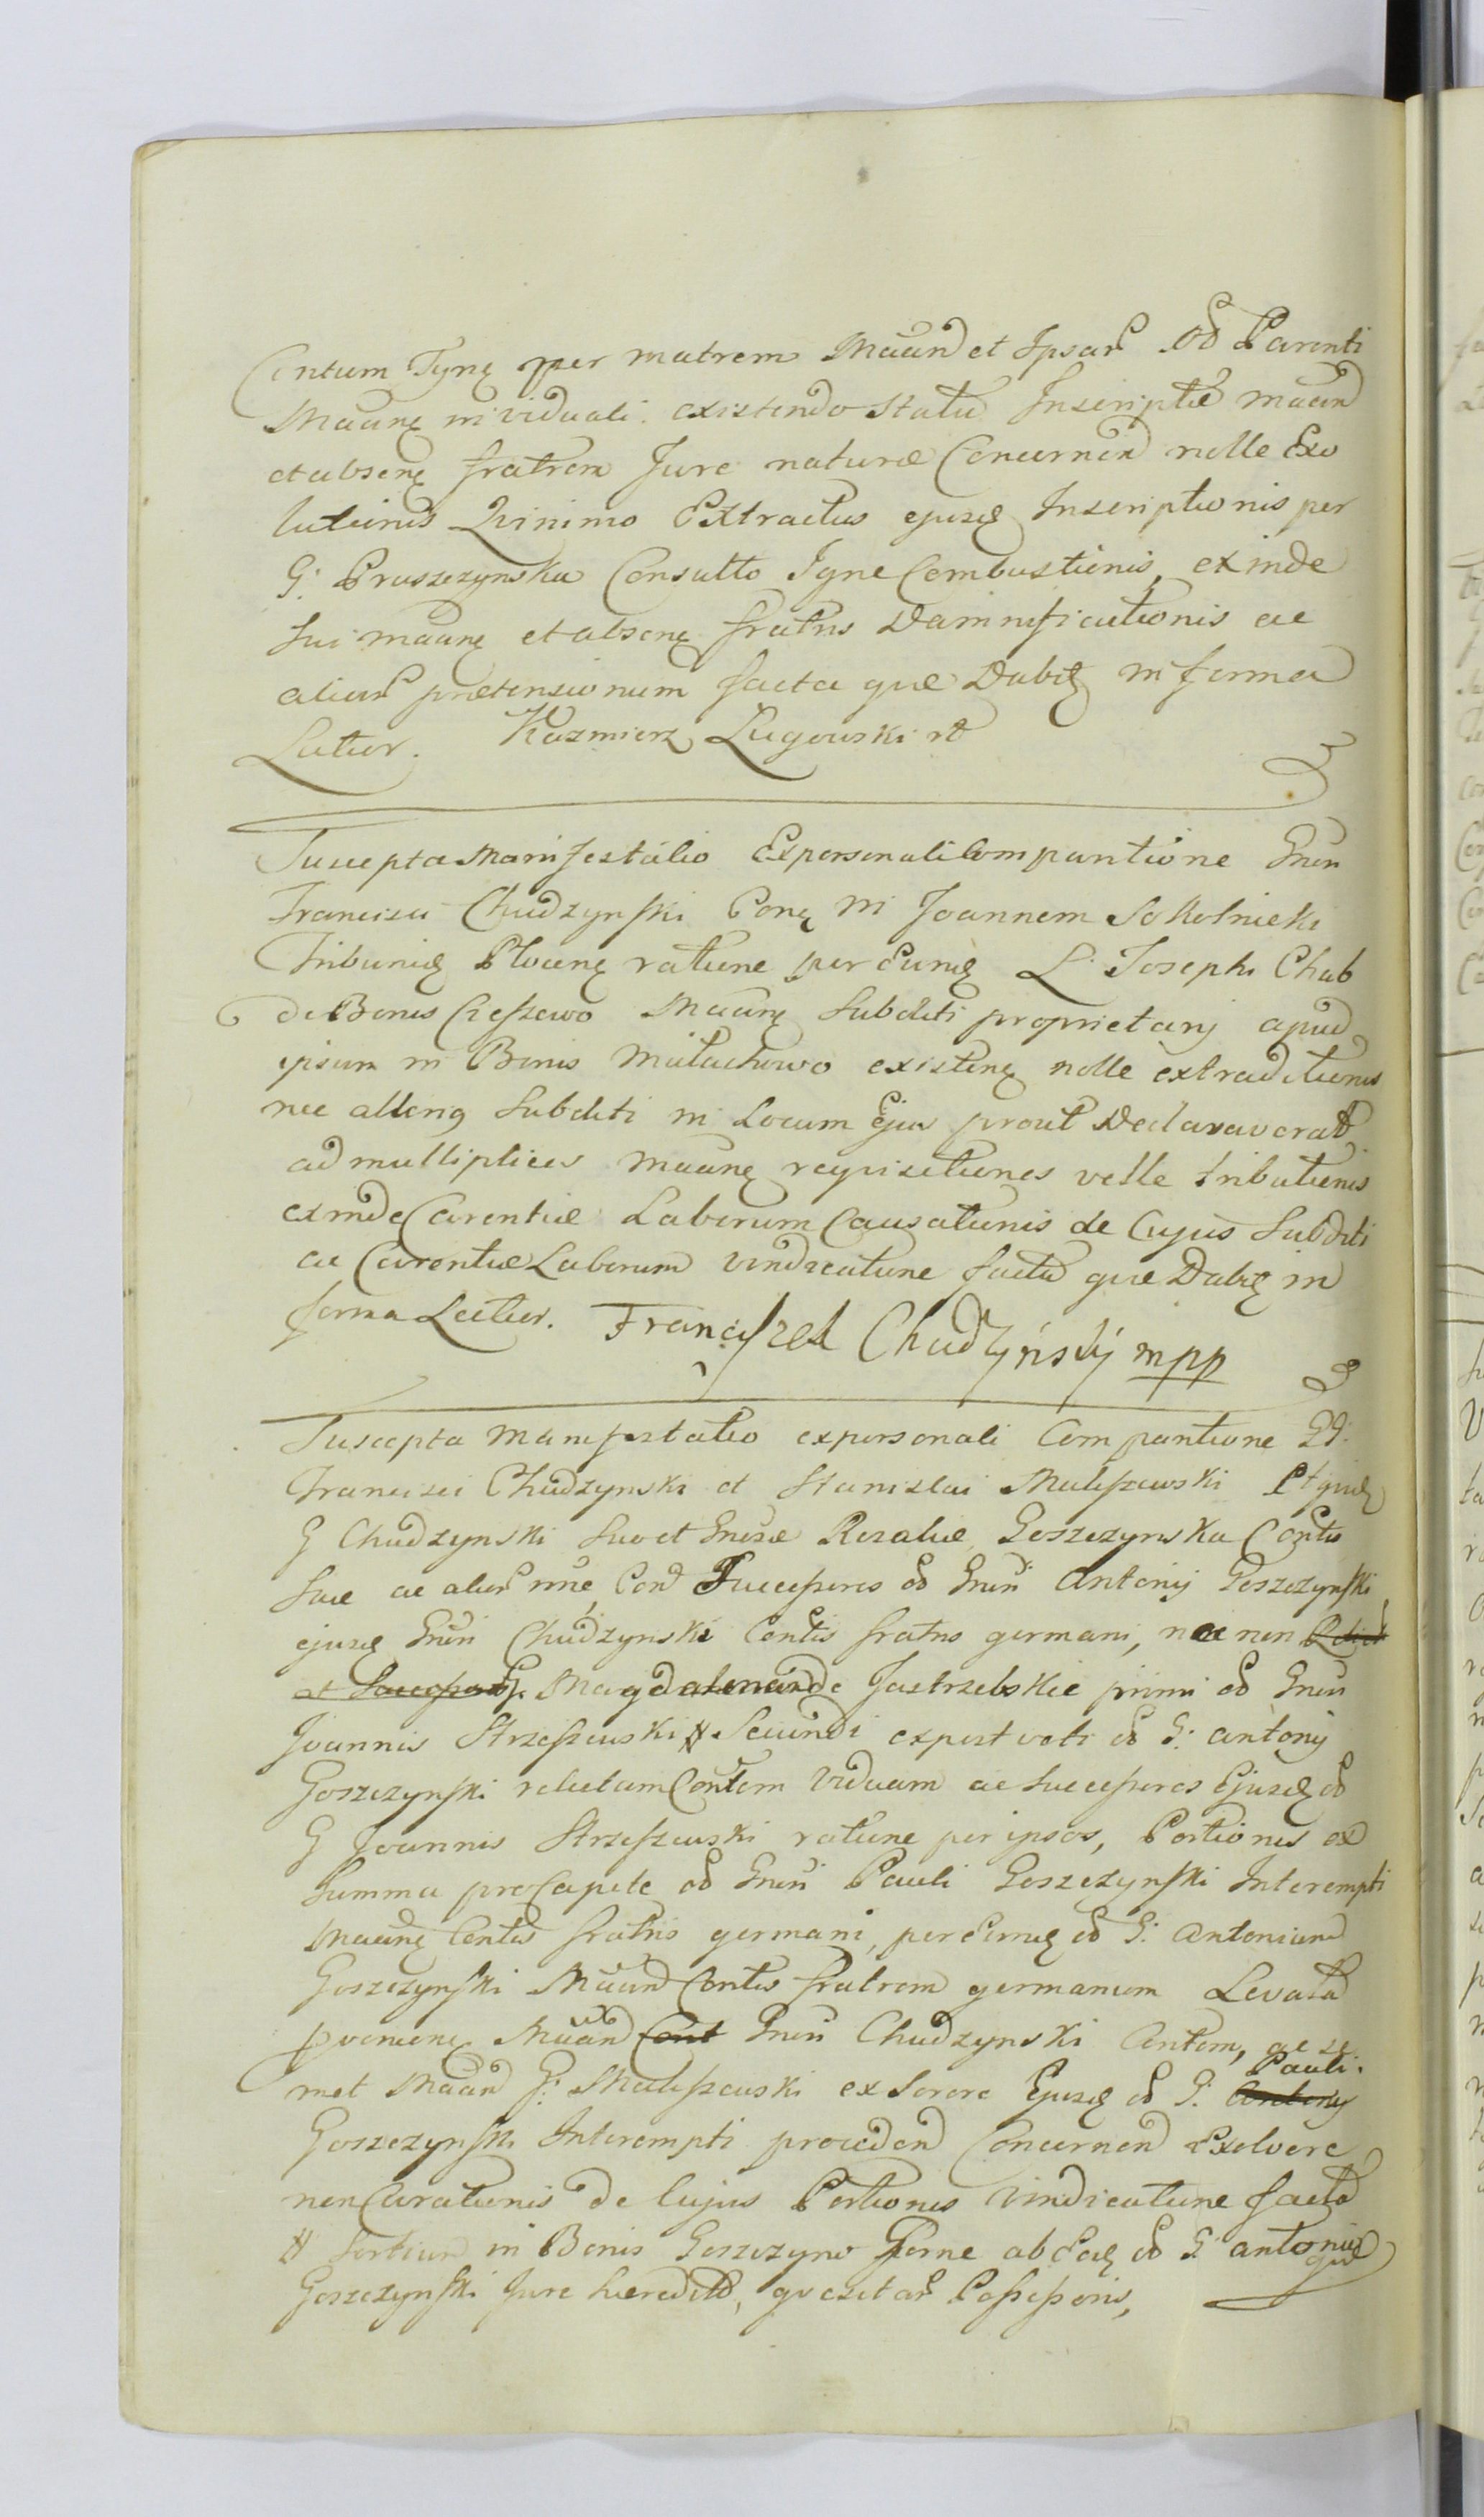 Centum Tynę per matrem Maand et Ipsar od Parenti
Maanę in viduali existendo Statu Inscriptæ maan
et absenę fratrem Jure naturæ Concernen nolle Exo
lutionis Quinimo Extractus ejusq Inscriptionis per
G: Pruszczynska Consulto Igne Combustionis, exinde
sui maanę et absenę fratris Damnificationis ac
aliar prætensionum facta quæ Dabiŧ in forma
Latior. Kazmierz Lugowski rt
Suscepta Manifestatio Ex personali Comparitione Gnen
Francisci Chudzynski Conę M Joannem Sokolnicki
Tribunię Plocenę ratione per Eunę L. Josephi Chab
de Bonis Cieszewo Maanę Subditi proprietarij apud
ipsum in Bonis Malachowo existenę nolle extraditionis
nec alterig Subditi in Locum Ejus prout Declaraverat
ad multiplices maanę requisitiones velle tributionis
exinde Carentiæ Laborum Causationis de Cujus Subditi
ac Carentiæ Laborum vindicatione facta quæ Dabiŧ in
forma Lectior. Franciszek Chudzyński mpp
Suscepta Manifestatio ex personali Comparitione GG:
Francisci Chudzynski et Stanislai Maleszewski
G Chudzynski suo et Gnesæ Rosaliæ Goszczynska Contis
suæ ac alior nne, Con Successores od Gnen Antonij Goszczynski
ejusę Gnen Chudzynski Contis fratris germani, nec non
et G. Magdalenam de Jastrzebskie primi od Gnen
Joannis Strzeszewski # Secundi expost voti od G: Antonij
Goszczynski relictam Contem Viduam ac Successores Ejusę od
G Joannis Strzeszewski ratione per ipsos, Portionis ex
Summa pro Capite od Gnen Pauli Goszczynski Interempti
Maanę Contis fratris germani, per Eunę od G: Antonium
Goszczynski Maand Contis fratrem germanum Levata
provenienę Maand Cont Gnen Chudzynski Contem, ac se
met Maand G: Maleszewski ex Sorore Ejusę od G: Antonij Pauli
Goszczynski Interempti proceden Concernen Exolvere
non Curationis de Cujus Portionis vindicatione facta
# Sortium in Bonis Goszczyno Gorne ab Eoę od G Antonio quæ
Goszczynski Jure hæredit, quæsitar Possessoris,